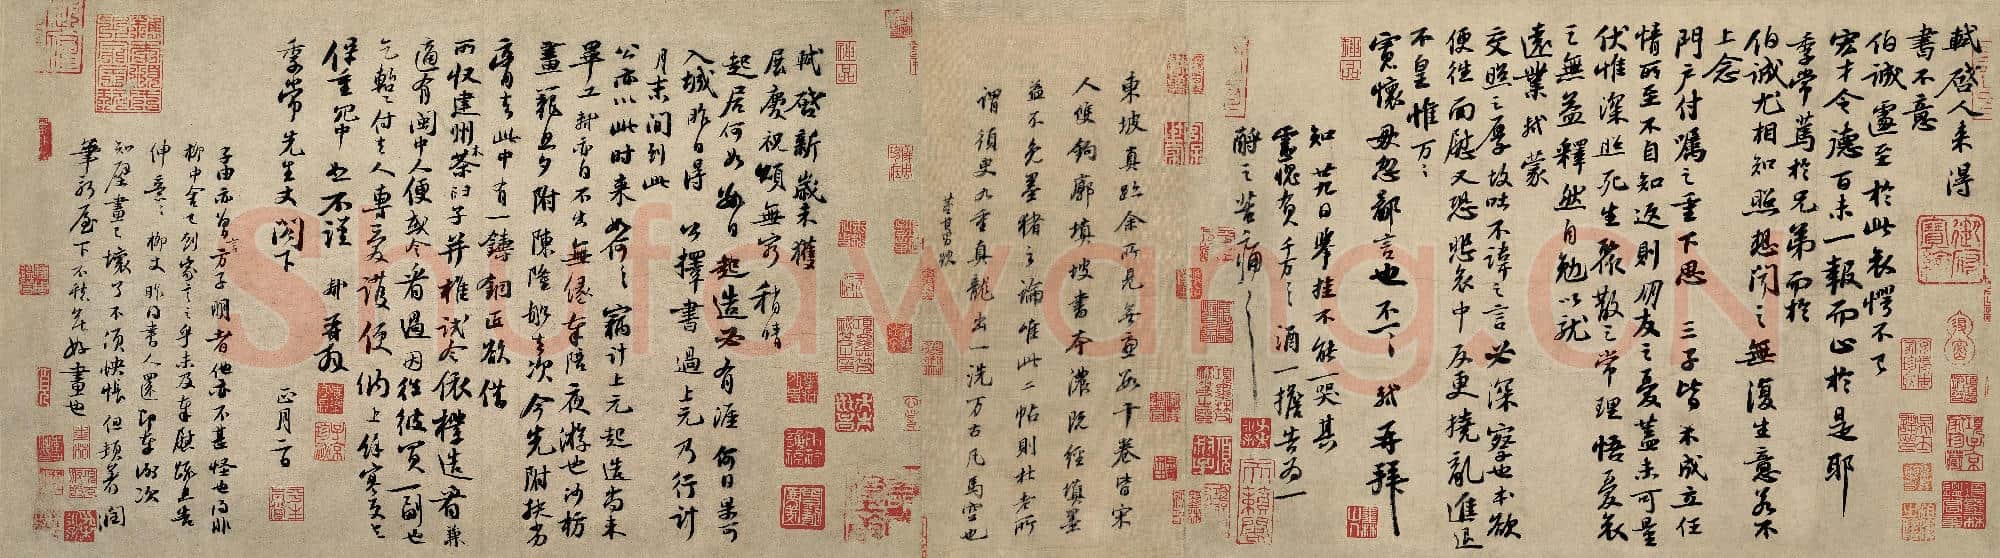 軾啓人来得
書不意
伯誠遽至於此哀愕不已
宏才令德百未一報而止於是耶
季常篤於兄弟而於
伯誠尤相知照想聞之無復生意若不
上念
門户付囑之重下思三子皆未成立任
情所至不自知返則朋友之憂蓋未可量
伏惟深照死生聚散之常理悟憂哀
之無益釋然自勉以就
遠業軾蒙
交照之厚故吐不諱之言必深察也本欲
便往面慰又恐悲哀中反更撓亂進退
不皇惟万万
寬懷毋忽鄙言也不一一軾再拜
知廿九日舉挂不能一哭其
靈愧負千万千万酒一擔告為一
酹之苦痛苦痛
東坡真跡余所見無慮數十卷皆宋
人雙鉤廓填坡書本濃既經填墨
益不免墨豬之論唯此二帖則杜老所
謂須臾九重真龍出一洗万古凡馬空也
董其昌題
軾啓新歲未獲
展慶祝頌無窮稍晴
起居何如數日起造必有涯何日果可
入城昨日得公擇書過上元乃行計
月末間到此
公亦以此時来如何如何竊計上元起造尚未
畢工軾亦自不出無緣奉陪夜游也沙枋
畫籠旦夕附陳隆船去次今先附扶劣
膏去此中有一鑄銅匠欲借
所收建州木茶臼子并椎試令依樣造看兼
適有閩中人便或令看過因往彼買一副也
乞暫付去人專愛護便納上餘寒更乞
保重冗中恕不謹軾再拜
季常先生丈閣下
正月二日
子由亦曾言方子明者他亦不甚怪也得非
柳中舍已到家言之乎未及奉慰疏且告
伸意伸意柳丈昨得書人還即奉謝次
知壁畫已壞了不須怏悵但頓著潤
筆新屋下不愁無好畫也
Shufawang.CN